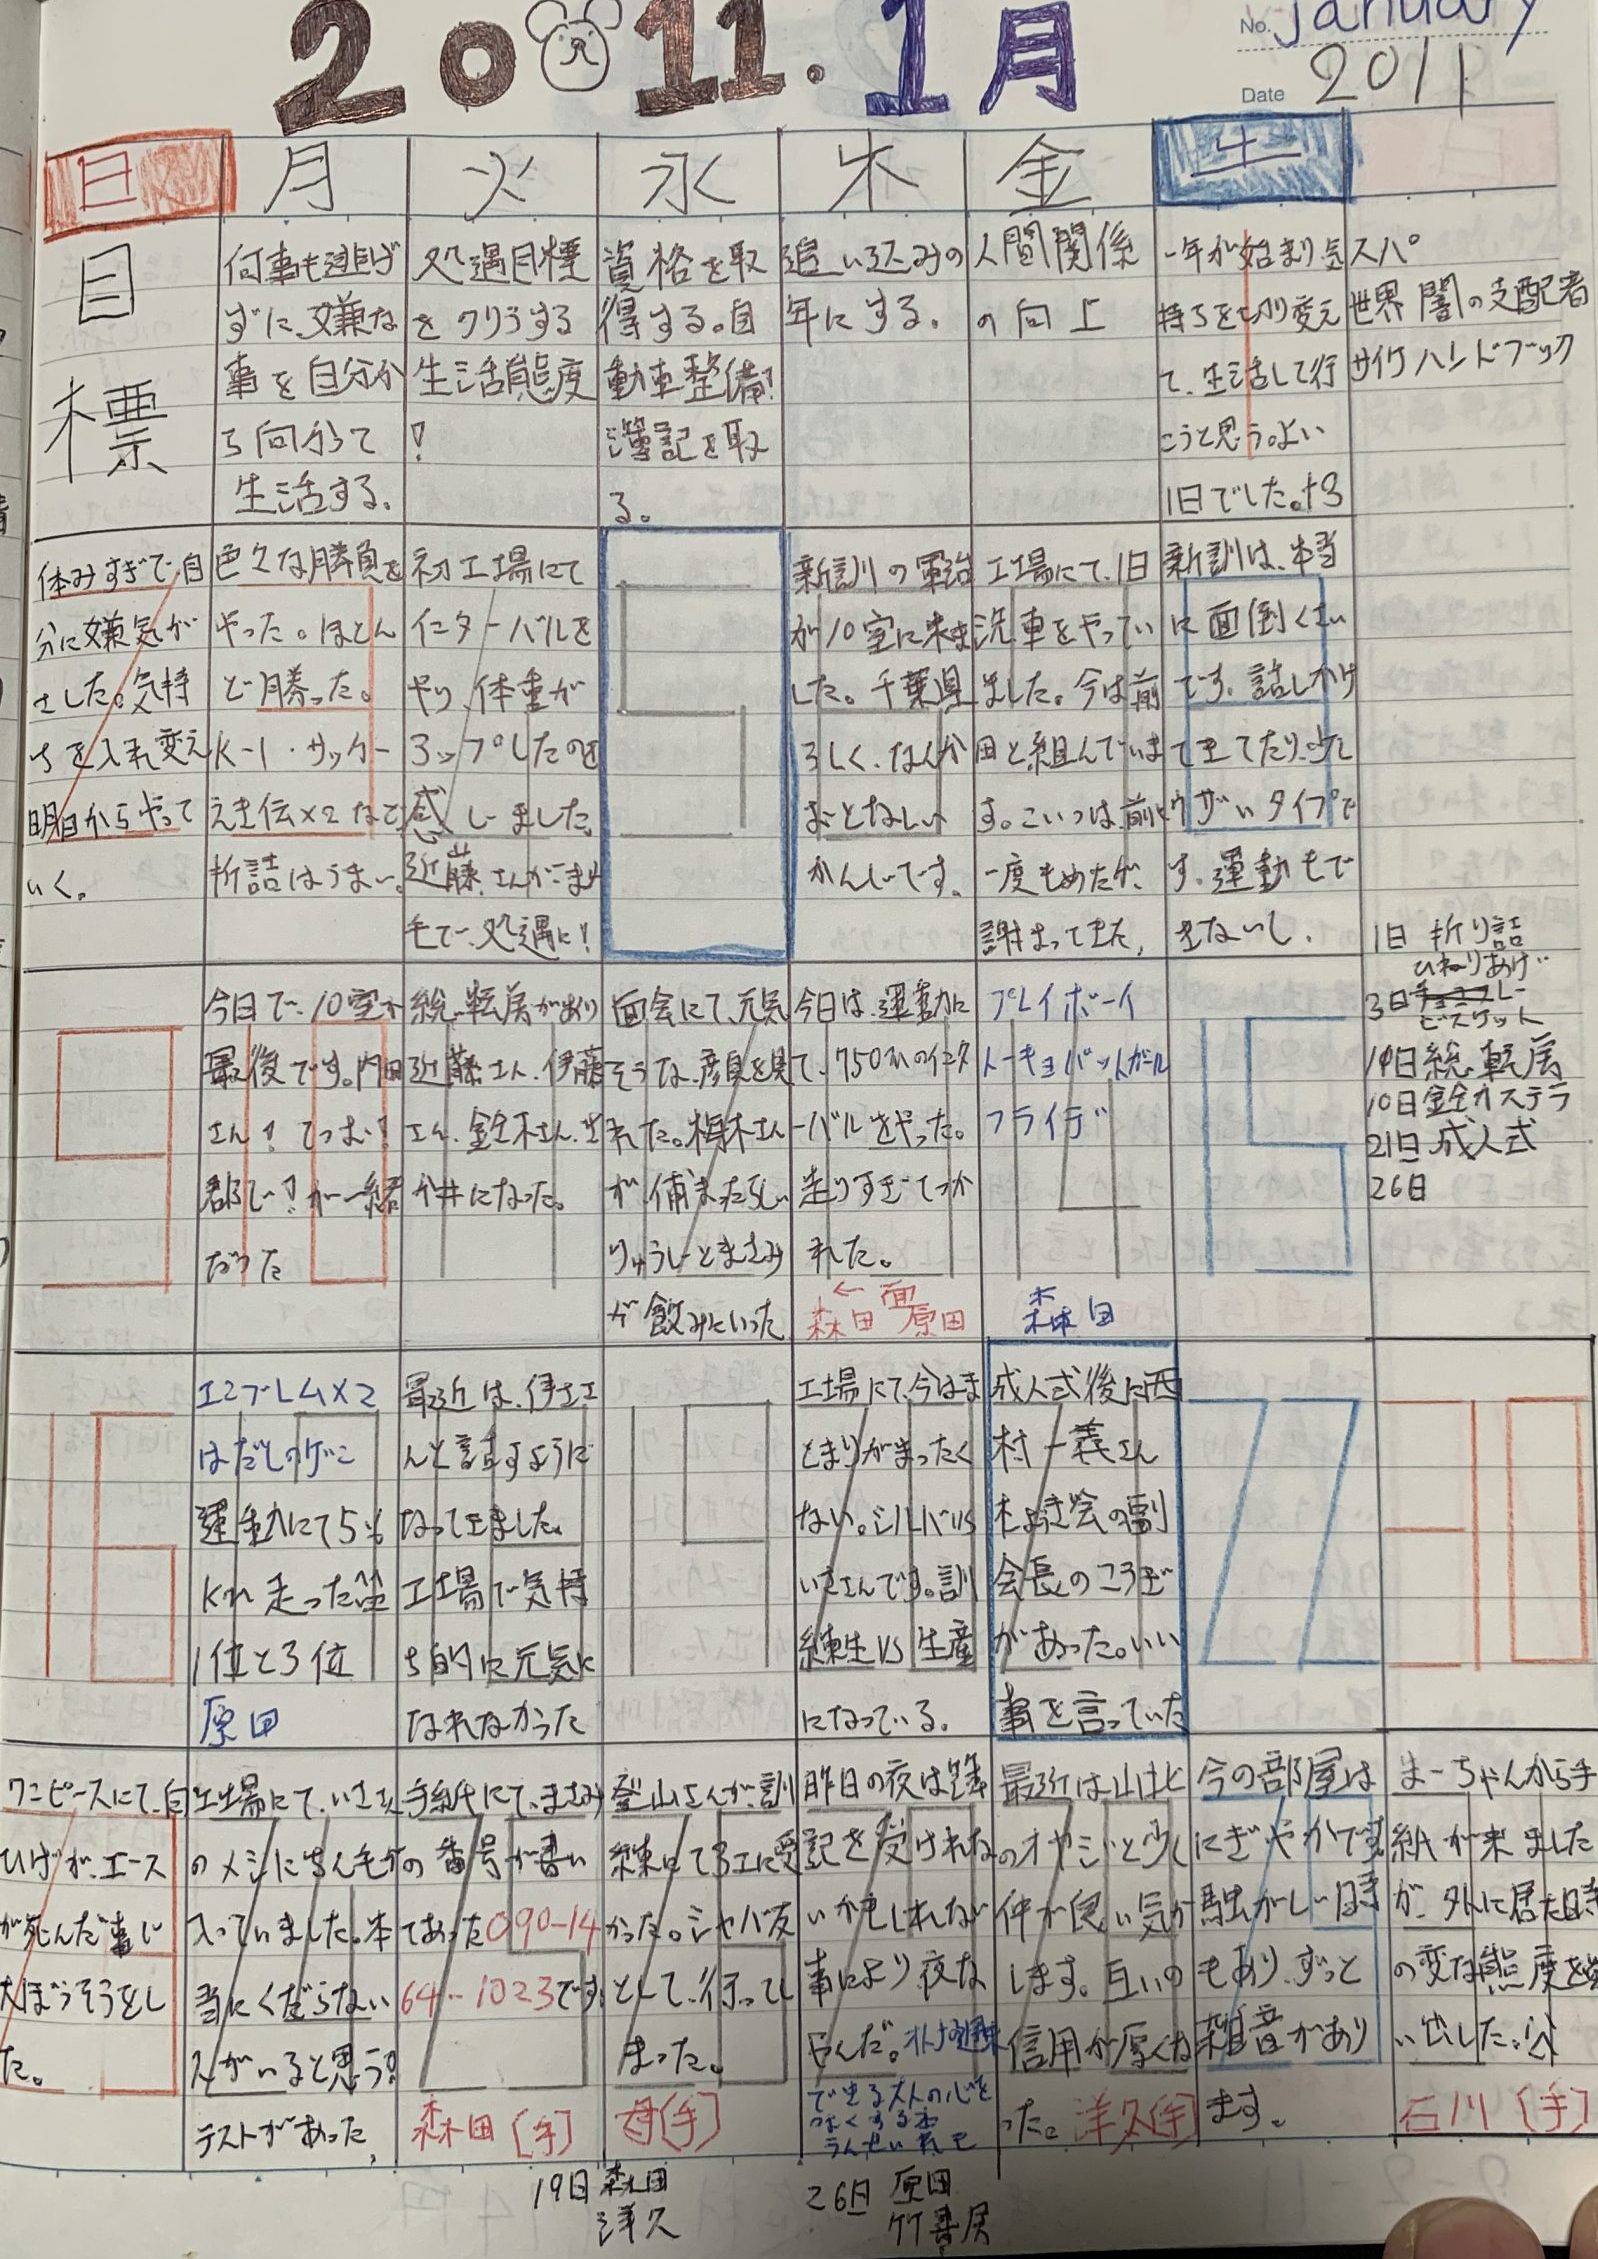 2011.1月
No. January
Date 2011
日 月 火 水 木 金 土 日
目標
何事も逃げ
ずに、嫌な
事を自分か
ら向かって
生活する。
処遇目標
をクリアする
生活態度
!
資格を取
得する。自
動車整備!
簿記を取
る。
追い込みの
年にする。
人間関係
の向上
一年が始まり気
持ちを切り変え
て、生活して行
こうと思う。よい
1日でした。
スパ
世界 闇の支配者
サイケハンドブック
休みすぎで、自
分に嫌気が
さした。気持
ちを入れ変え
明日からやって
いく。
色々な勝負を
やった。ほとん
ど勝った。
K-1・サッカー
えき伝×2など
折詰はうまい。
初工場にて
インターバルを
やり、体重が
アップしたのを
感じました。
近藤さんが
毛で、処遇に!
5
新訓の
が10室に来ま
した。千葉県
らしく、なんか
おとなしい
かんじです。
工場にて、1日
洗車をやってい
ました。今は前
田と組んでいま
す。こいつは、前に
一度もめたが、
謝まってきた。
新訓は、本当
に面倒くさい
です。話しかけ
てきてたり、少し
ウザいタイプで
す。運動もで
きないし。
1日 折り詰
ひねりあげ
3日
ビスケット
10日 金 カステラ
21日 成人式
26日
9
今日で、10室が
最後です。内田
さん!てつお!
郡じ!が一緒
だった
総転房があり
近藤さん、伊藤
さん、鈴木さん、
になった。
面会にて、元気
そうな、彦員を見
れた。梅木さん
が、捕まったらしい
りゅうじとまさみ
が飲みにいった
今日は、運動に
て、750mのインタ
ーバルをやった。
走りすぎてつか
れた。
←面
森田 原田
プレイボーイ
トーキョバットガール
フライデー
森田
15
16
エンブレム×2
はだしのゲン
運動にて
Km 走った
1位と3位
原田
最近は、伊土工
んと話すように
なってきました。
工場で気持
ち的に元気に
なれなかった
19
工場にて、今はま
とまりがまったく
ない。シルバVS
いさんです。訓
練生VS生産
になっている。
成人式後に西
村一義さん
会の副
会長のこうぎ
があった。いい
事を言っていた
22
30
ワンピースにて、白
ひげが、エース
が死んだ事に
大ぼうそうをし
た。
工場にて、いさん
のメシにちん毛が
入っていました。本
当にくだらない
人がいると思う!
テストがあった。
手紙にて、まさみ
の番号が書い
てあった090-14
64-1023です。
森田〔手〕
登山さんが、訓
練にて3工に受
かった。シャバ友
として、行ってし
まった。
母〔手〕
昨日の夜は
記を受けれな
いかもしれない
事により、夜な
やんだ。
できる大人の心を
つよくする本
最近は山北
のオヤジと少し
仲が良い気が
します。互いの
信用が厚くな
った。洋久〔手〕
今の部屋は
にぎやかです。
騒がしい時
もあり、ずっと
雑音があり
ます。
まーちゃんから手
紙が来ました
が、外に居た時
の変な態度を
い出した。
石川〔手〕
19日 森田
洋久
26日 原田
竹書房